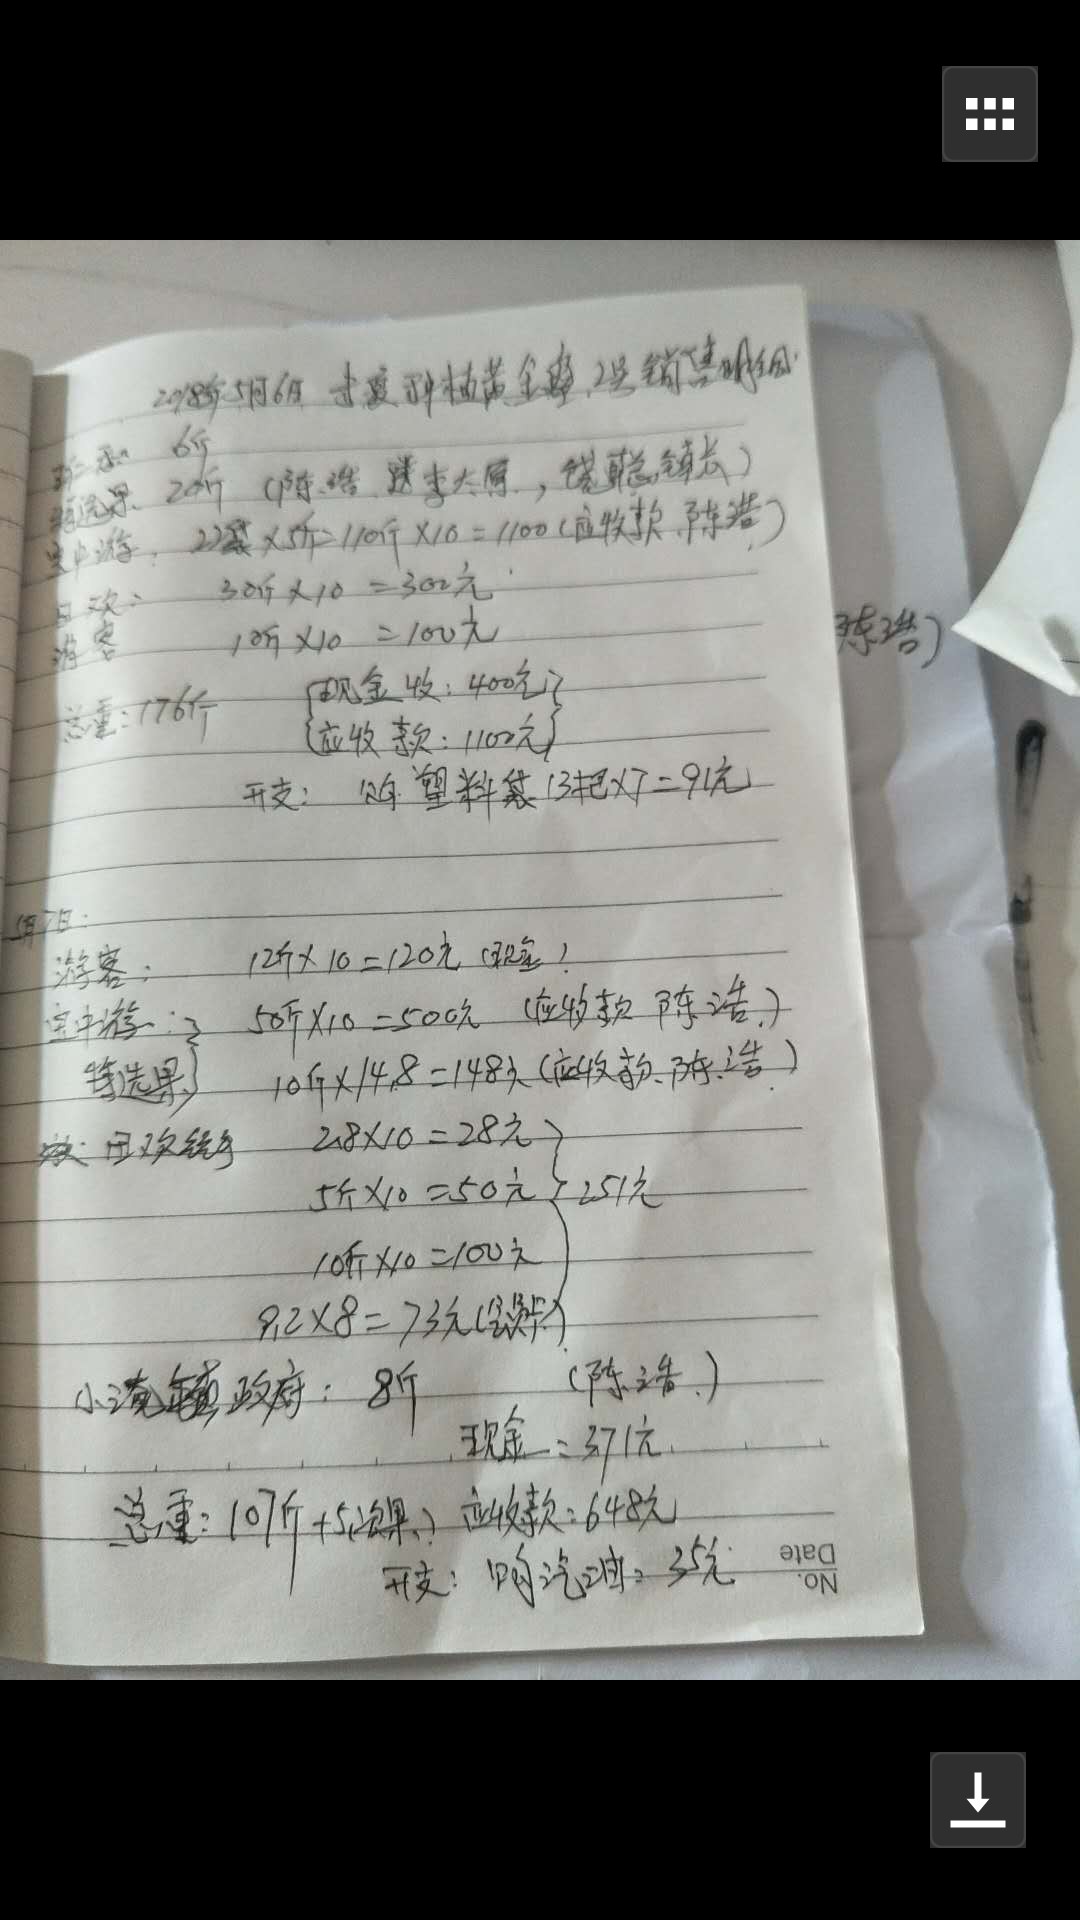 2018年5月6日 种植黄金蜂2号销售明细
6斤
特选果 20斤 (陈浩 送李大原,镇长)
空中游: 22袋×5斤=110斤×10=1100(应收款 陈浩)
30斤×10=300元
游客 10斤×10=100元
陈浩)
总重:176斤 现金收:400元
应收款:1100元
开支: 购塑料袋13把×7=91元
5月7日:
游客: 12斤×10=120元(现金)
空中游: 50斤×10=500元 (应收款 陈浩)
特选果 10斤×14.8=148元(应收款 陈浩)
2.8×10=28元
5斤×10=50元 251元
10斤×10=100元
9.2×8=73元
镇政府: 8斤 (陈浩)
现金=371元
总重:107斤+5(次果) 应收款=648元
开支: 购汽油=35元
No.
Date